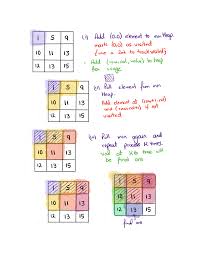 1 5 9
10 11 13
12 13 15
(i) Add (0,0) element to min Heap.
mark (0,0) as visited
(use a Set to track visited)
Add (row, col, value) to heap
for usage
1 5 9
10 11 13
12 13 15
(ii) Pull element from min
Heap.
Add element at (row+1, col)
and (row, col+1) if not
visited
1 5 9
10 11 13
12 13 15
(iii) Pull min again and
repeat process K times.
val at Kth time will
be final ans
1 5 9
10 11 13
12 13 15
final ans